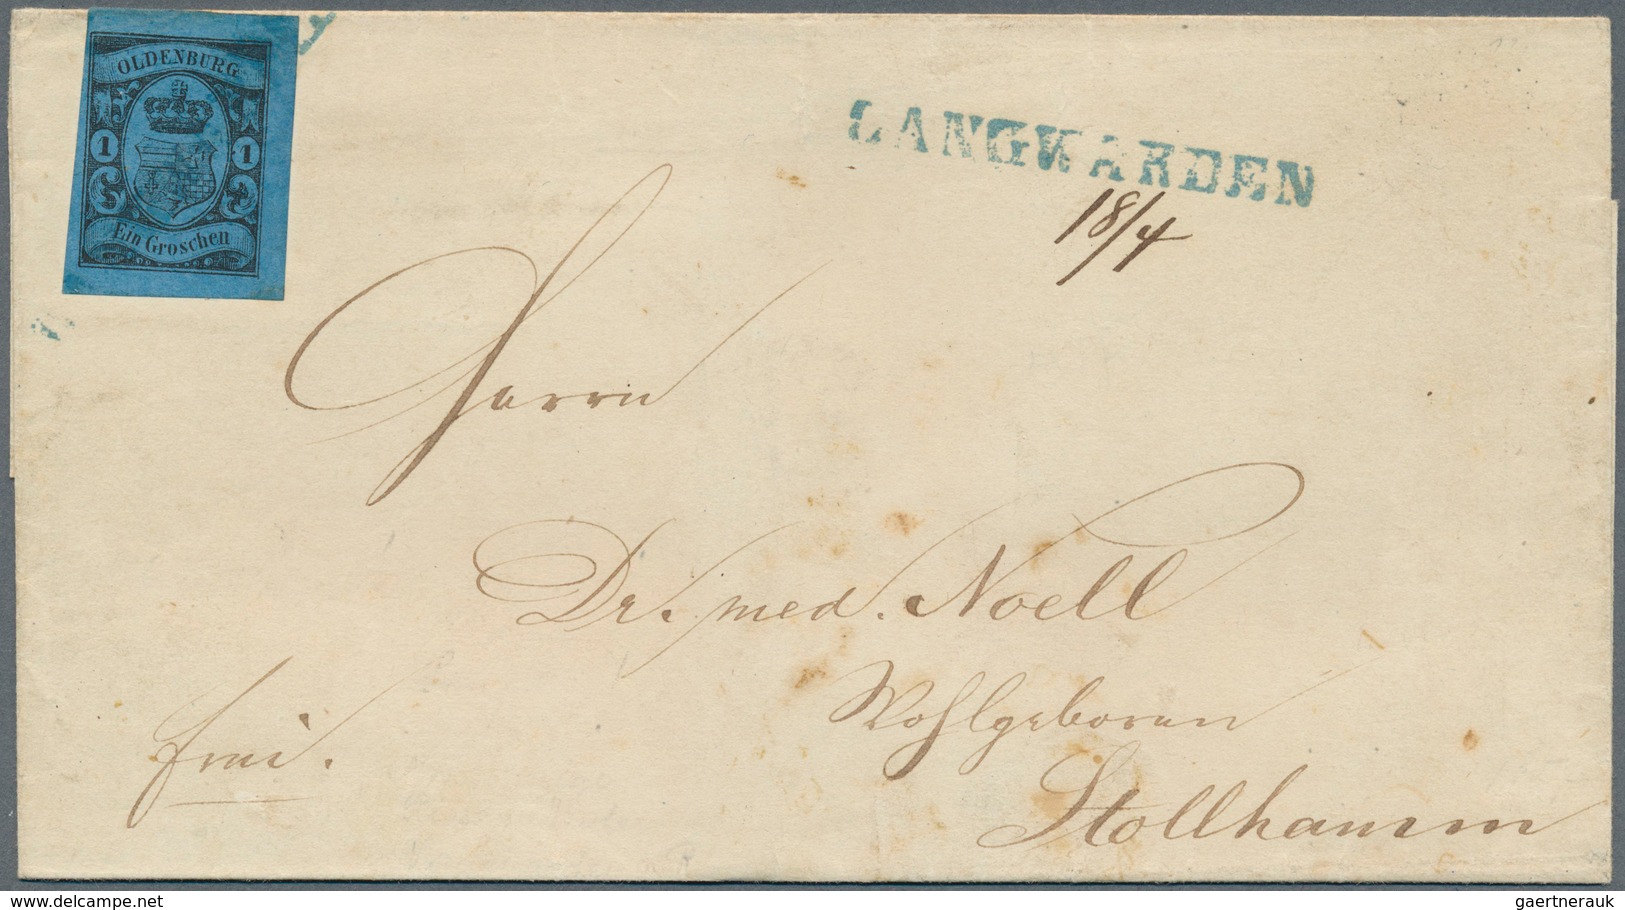 OLDENBURG
1 1
Ein Groschen
LANGWARDEN
18/4
Herrn
Dr. med. Noell
Wohlgeboren
frei.
Stollhamm
delcampe.net
gaertnerauk